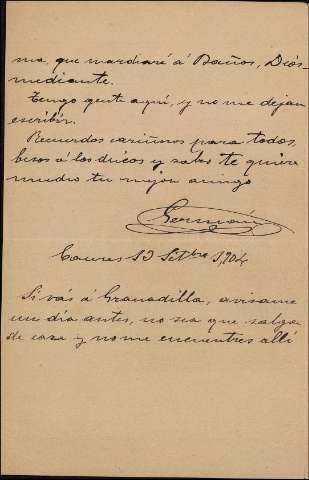 ma, que marcharé á Baños, Diós
mediante.
Tengo gente aquí, y no me dejan
escribir.
Recuerdos cariñosos para todos,
besos á los chicos y sabes te quiere
mucho tu mejor amigo
Germán
13 Setbre 1,904
Si vás á Granadilla, avisame
un dia antes, no sea que salga
de caza y no me encuentres allí